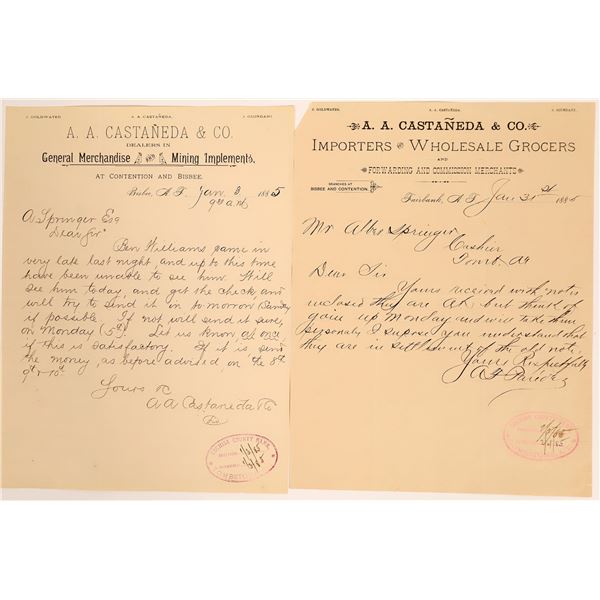 J. GOLDWATER. A. A. CASTAÑEDA. J. GUINDANI.
A. A. CASTAÑEDA & CO.
DEALERS IN
General Merchandise AND Mining Implements.
AT CONTENTION AND BISBEE.
Bisbee, A. T. Jan. 3 1885
9 a.m.
A Springer Esq
Dear Sir
Ben Williams came in
very late last night, and up to this time
have been unable to see him. Will
see him today, and get the check and
will try to send it in tomorrow Sunday
if possible. If not will send it sure,
on Monday (5th). Let us know at once
if this is satisfactory. If it is, send
the money, as before advised, on the 8th
9th & 10th.
Yours &c
A A Castaneda & Co
COCHISE COUNTY BANK,
TOMBSTONE
J. GOLDWATER. A. A. CASTAÑEDA. J. GUINDANI.
A. A. CASTAÑEDA & CO.
IMPORTERS AND WHOLESALE GROCERS
AND
FORWARDING AND COMMISSION MERCHANTS
BRANCHES AT
BISBEE AND CONTENTION.
Fairbank, A. T. Jan 31st 1885
Mr Albt Springer,
Cashier
Dear Sir
Yours received with notes
inclosed they are OK, but think of
going up Monday and will take them
personaly I supose you understand that
they are in settlement of the old note.
Yours Respectfully
COCHISE COUNTY BANK,